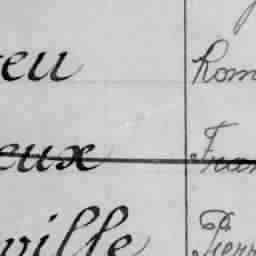 eu Rom
eux Fran
ville Pierr